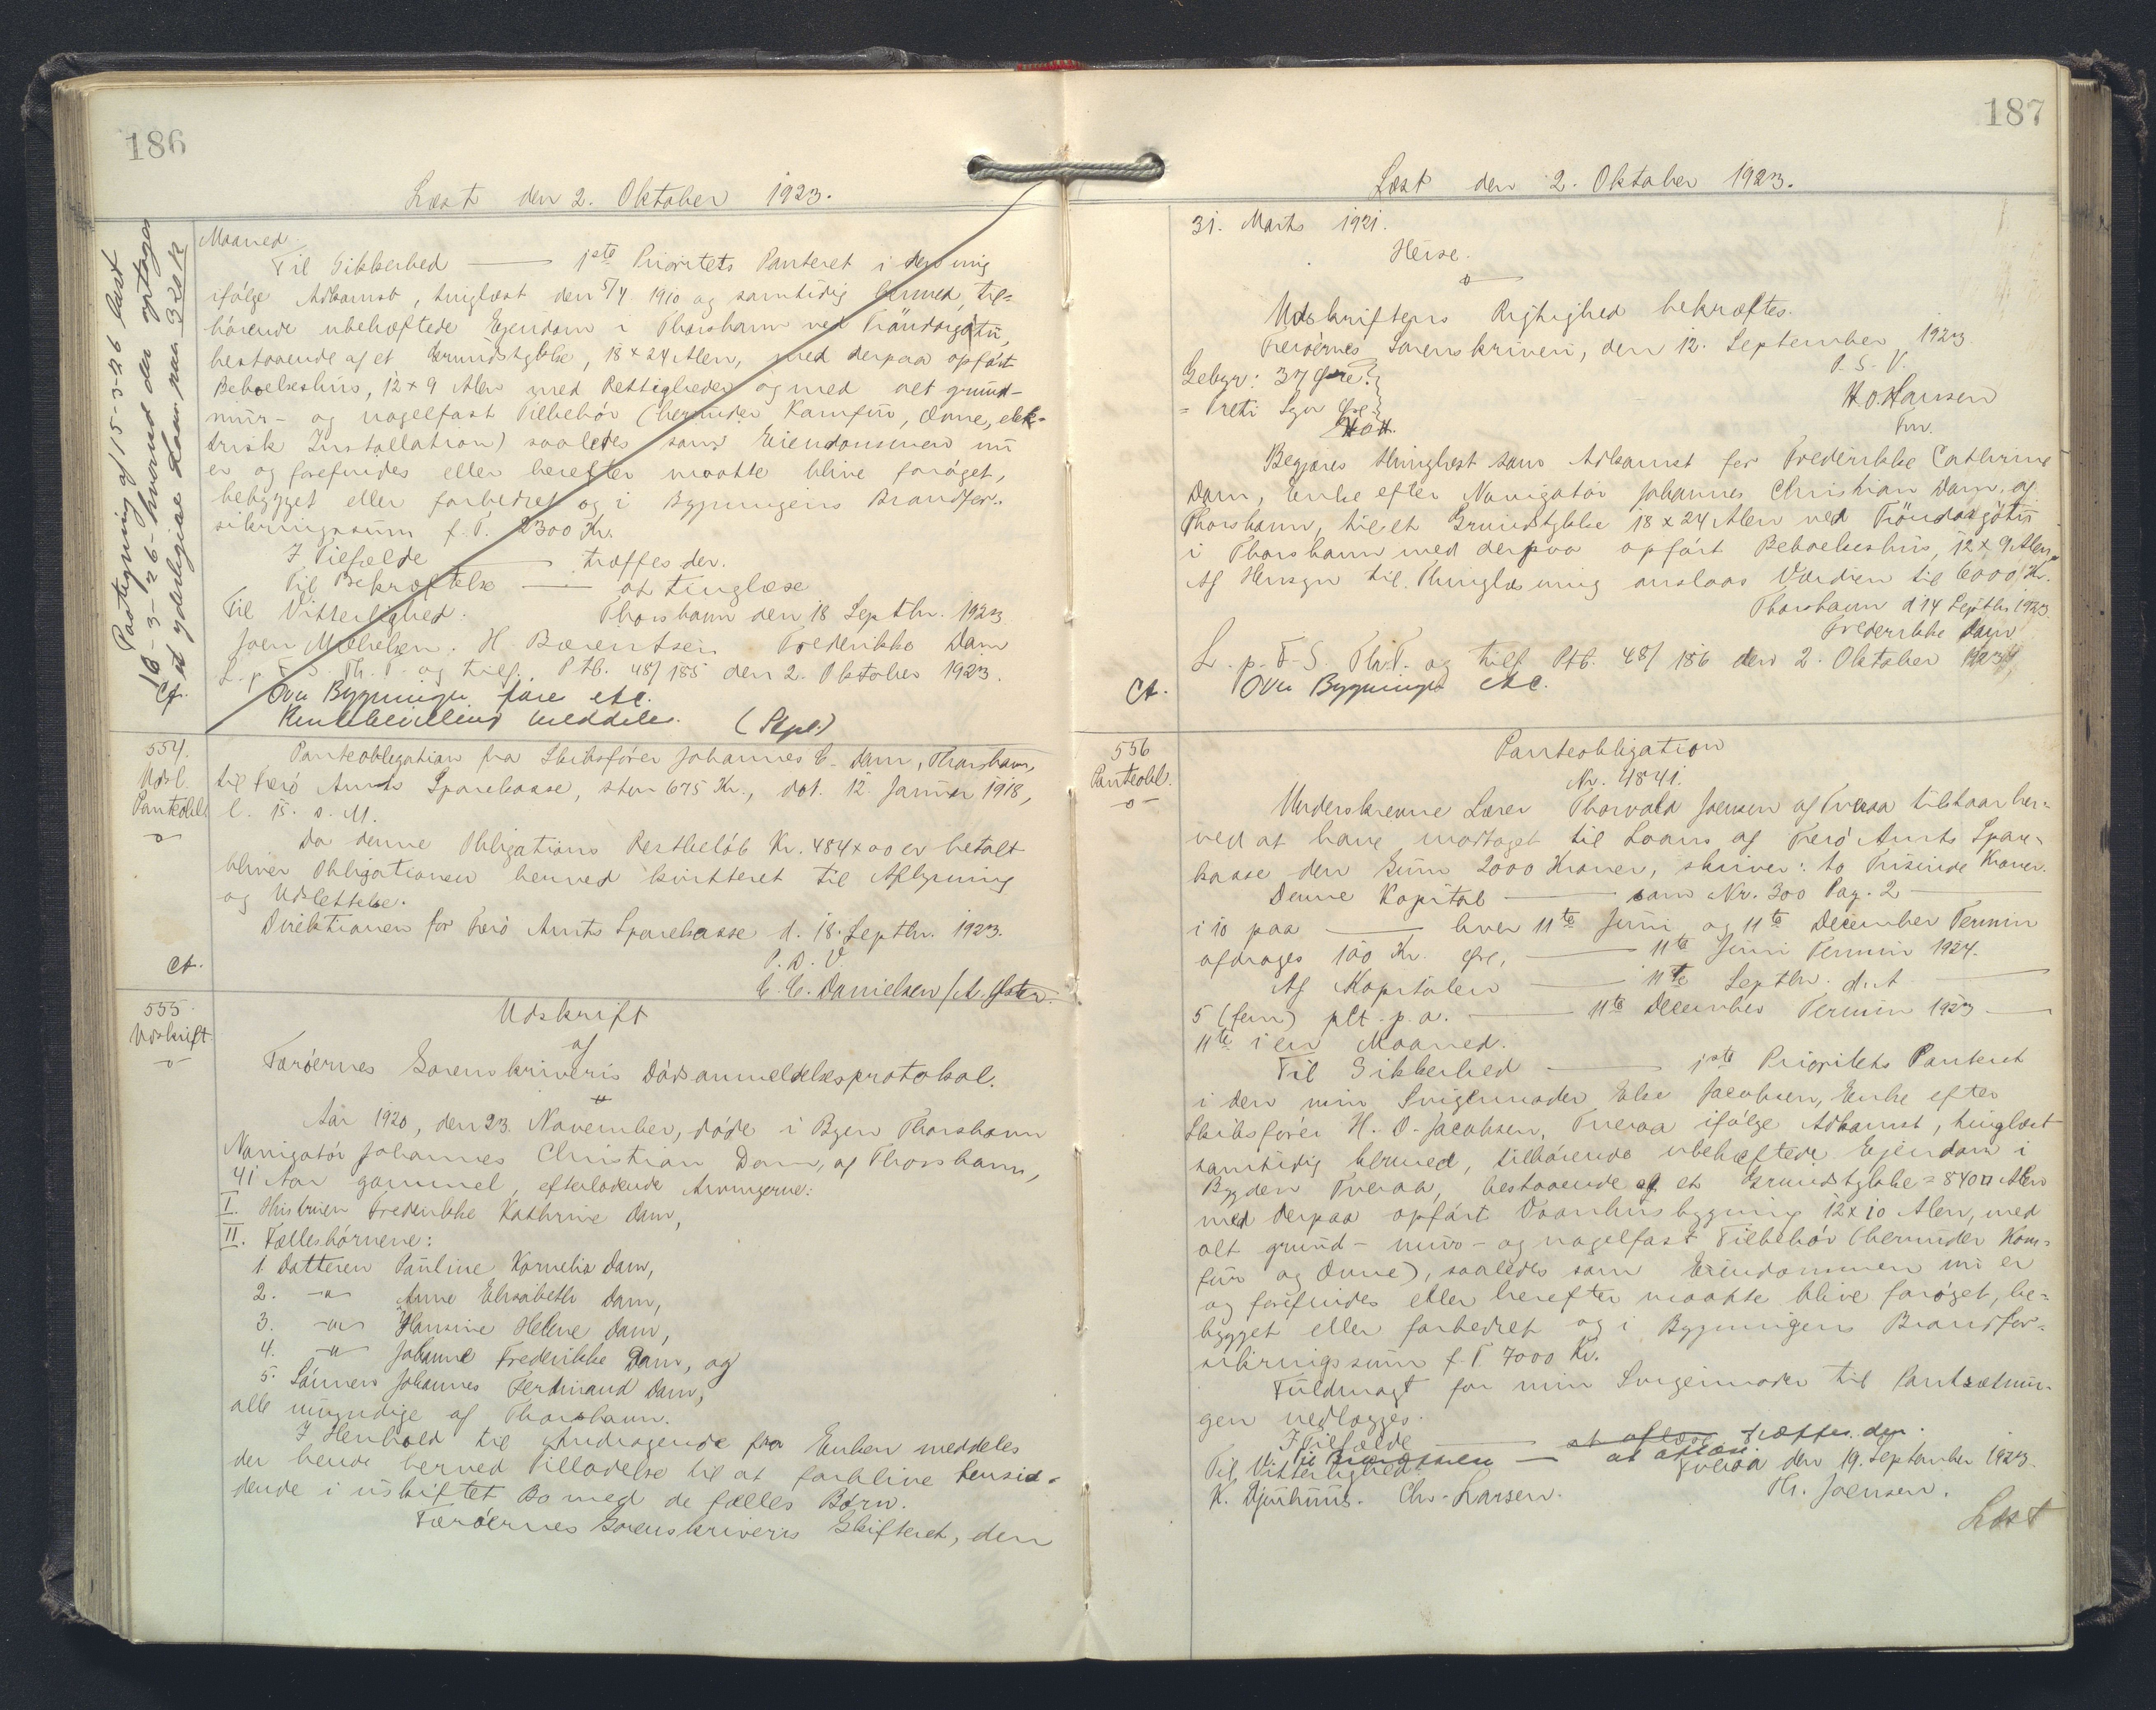 186
Læst den 2. Oktober 1923.
Paategning af 15-3-26 læst
16-3-26 - hvorved der optages
et yderligere Laan paa 320 K
Maaned.
Til Sikkerhed — 1ste Prioritets Panteret i den mig
ifölge Adkomst, tinglæst den 5/4 1910 og samtidig hermed, til-
hörende ubehæftede Ejendom i Thorshavn ved Tröndargötu,
bestaaende af et Grundstykke, 18 x 24 Alen, med derpaa opfört
Beboelseshus, 12 x 9 Alen med Rettigheder og med alt grund-
mur- og nagelfast Tilbehör (herunder Komfur, Ovne, elek-
trisk Installation) saaledes som Eiendommen nu
er og forefindes eller herefter maatte blive foröget,
bebygget eller forbedret og i Bygningens Brandfor-
sikringssum f. T. 2300 Kr.
I Tilfælde — træffes der.
Til Bekræftelse — at tinglæse
Til Vitterlighed. Thorshavn den 18 Septbr. 1923.
Joen Michelsen. H Bærentsen Frederikke Dam
L. p. F. S. Th. T. og tilf. Ptb. 48/185 den 2. Oktober 1923.
Ct. Ovn Bygninger före etc.
meddeles. (Stpl.)
554.
Udsl.
Panteobl.
Panteobligation fra Skibsförer Johannes C. Dam, Thorshavn,
til Færö Amts Sparekasse, stor 675 Kr., dat. 12. Januar 1918,
l. 15. s. M.
Da denne Obligations Restbelöb Kr. 484 x 00 er betalt
bliver Obligationen herved kvitteret til Aflysning
og Udslettelse.
Direktionen for Færö Amts Sparekasse d. 18. Septbr. 1923.
P. D. V.
Ct. C. C. Danielsen /A.
555.
Udskrift
Udskrift
af
Færöernes Sorenskriveris Dödsanmeldelsesprotokol.
Aar 1920, den 23. November, döde i Byen Thorshavn
Navigatör Johannes Christian Dam, af Thorshavn,
41 Aar gammel, efterladende Arvingerne:
I. Hustruen Frederikke Kathrine Dam,
II. Fællesbörnene:
1. Datteren Pauline Kornelia Dam,
2. -"- Anne Elisabeth Dam,
3. -"- Hansine Helene Dam,
4. -"- Johanne Frederikke Dam, og
5. Sönnen Johannes Ferdinand Dam,
alle umyndige af Thorshavn.
I Henhold til Andragende fra Enken meddeles
der hende herved Tilladelse til at forblive hensid-
dende i uskiftet Bo med de fælles Börn.
Færöernes Sorenskriveris Skifteret, den
187
Læst den 2. Oktober 1923.
31. Marts 1921.
Heise.
Udskriftens Rigtighed bekræftes.
Færöernes Sorenskriveri, den 12. September 1923
P. S. V.
Gebyr: 37 Øre.
= Treti Syv Øre
H.O.H.
H. O. Hansen
Fm.
Begjæres thinglæst som Adkomst for Frederikke Cathrine
Dam, Enke efter Navigatör Johannes Christian Dam, af
Thorshavn, til et Grundstykke 18 x 24 Alen ved Tröndargötu
i Thorshavn med derpaa opfört Beboelseshus, 12 x 9 Alen.
Af Hensyn til Thinglæsning anslaas Værdien til 6000 Kr.
Thorshavn d 14 Septbr 1923
Frederikke Dam
L. p. F. S. Th. T. og tilf. Ptb. 48/186 den 2. Oktober 1923
Ct. Ovn Bygninger etc.
556
Panteobl.
Panteobligation
Nr. 4841.
Underskrevne Lærer Thorvald Joensen af Tveraa tilstaar her-
ved at have modtaget til Laans af Færö Amts Spare-
kasse den Sum 2000 Kroner, skriver: to Tusinde Kroner.
Denne Kapital — som Nr. 300 Pag. 2 —
i 10 paa — hver 11te Juni og 11te December Termin
afdrages 100 Kr. Øre, — 11te Juni Termin 1924.
Af Kapitalen — 11te Septbr. d. A —
5 (fem) pCt. p. a. — 11te December Termin 1923 —
11te i en Maaned.
Til Sikkerhed — 1ste Prioritets Panteret
i den min Svigermoder Else Jacobsen, Enke efter
Skibsförer H. O. Jacobsen, Tveraa ifölge Adkomst, tinglæst
samtidig hermed, tilhörende ubehæftede Ejendom i
Bygden Tveraa, bestaaende af et Grundstykke = 840 □ Alen
med derpaa opfört Vaanhusbygning 12 x 10 Alen, med
alt grund- mur- og nagelfast Tilbehör (herunder Kom-
fur og Ovne), saaledes som Eiendommen nu er
og forefindes eller herefter maatte blive foröget, be-
bygget eller forbedret og i Bygningens Brandfor-
sikringssum f. T. 7000 Kr.
Fuldmagt for min Svigermoder til Pantsætnin-
gen vedlægges.
I Tilfælde — træffes der.
Til Vitterlighed Tveraa den 19. September 1923.
K. Djurhuus. Chr. Larsen. Th. Joensen.
Læst